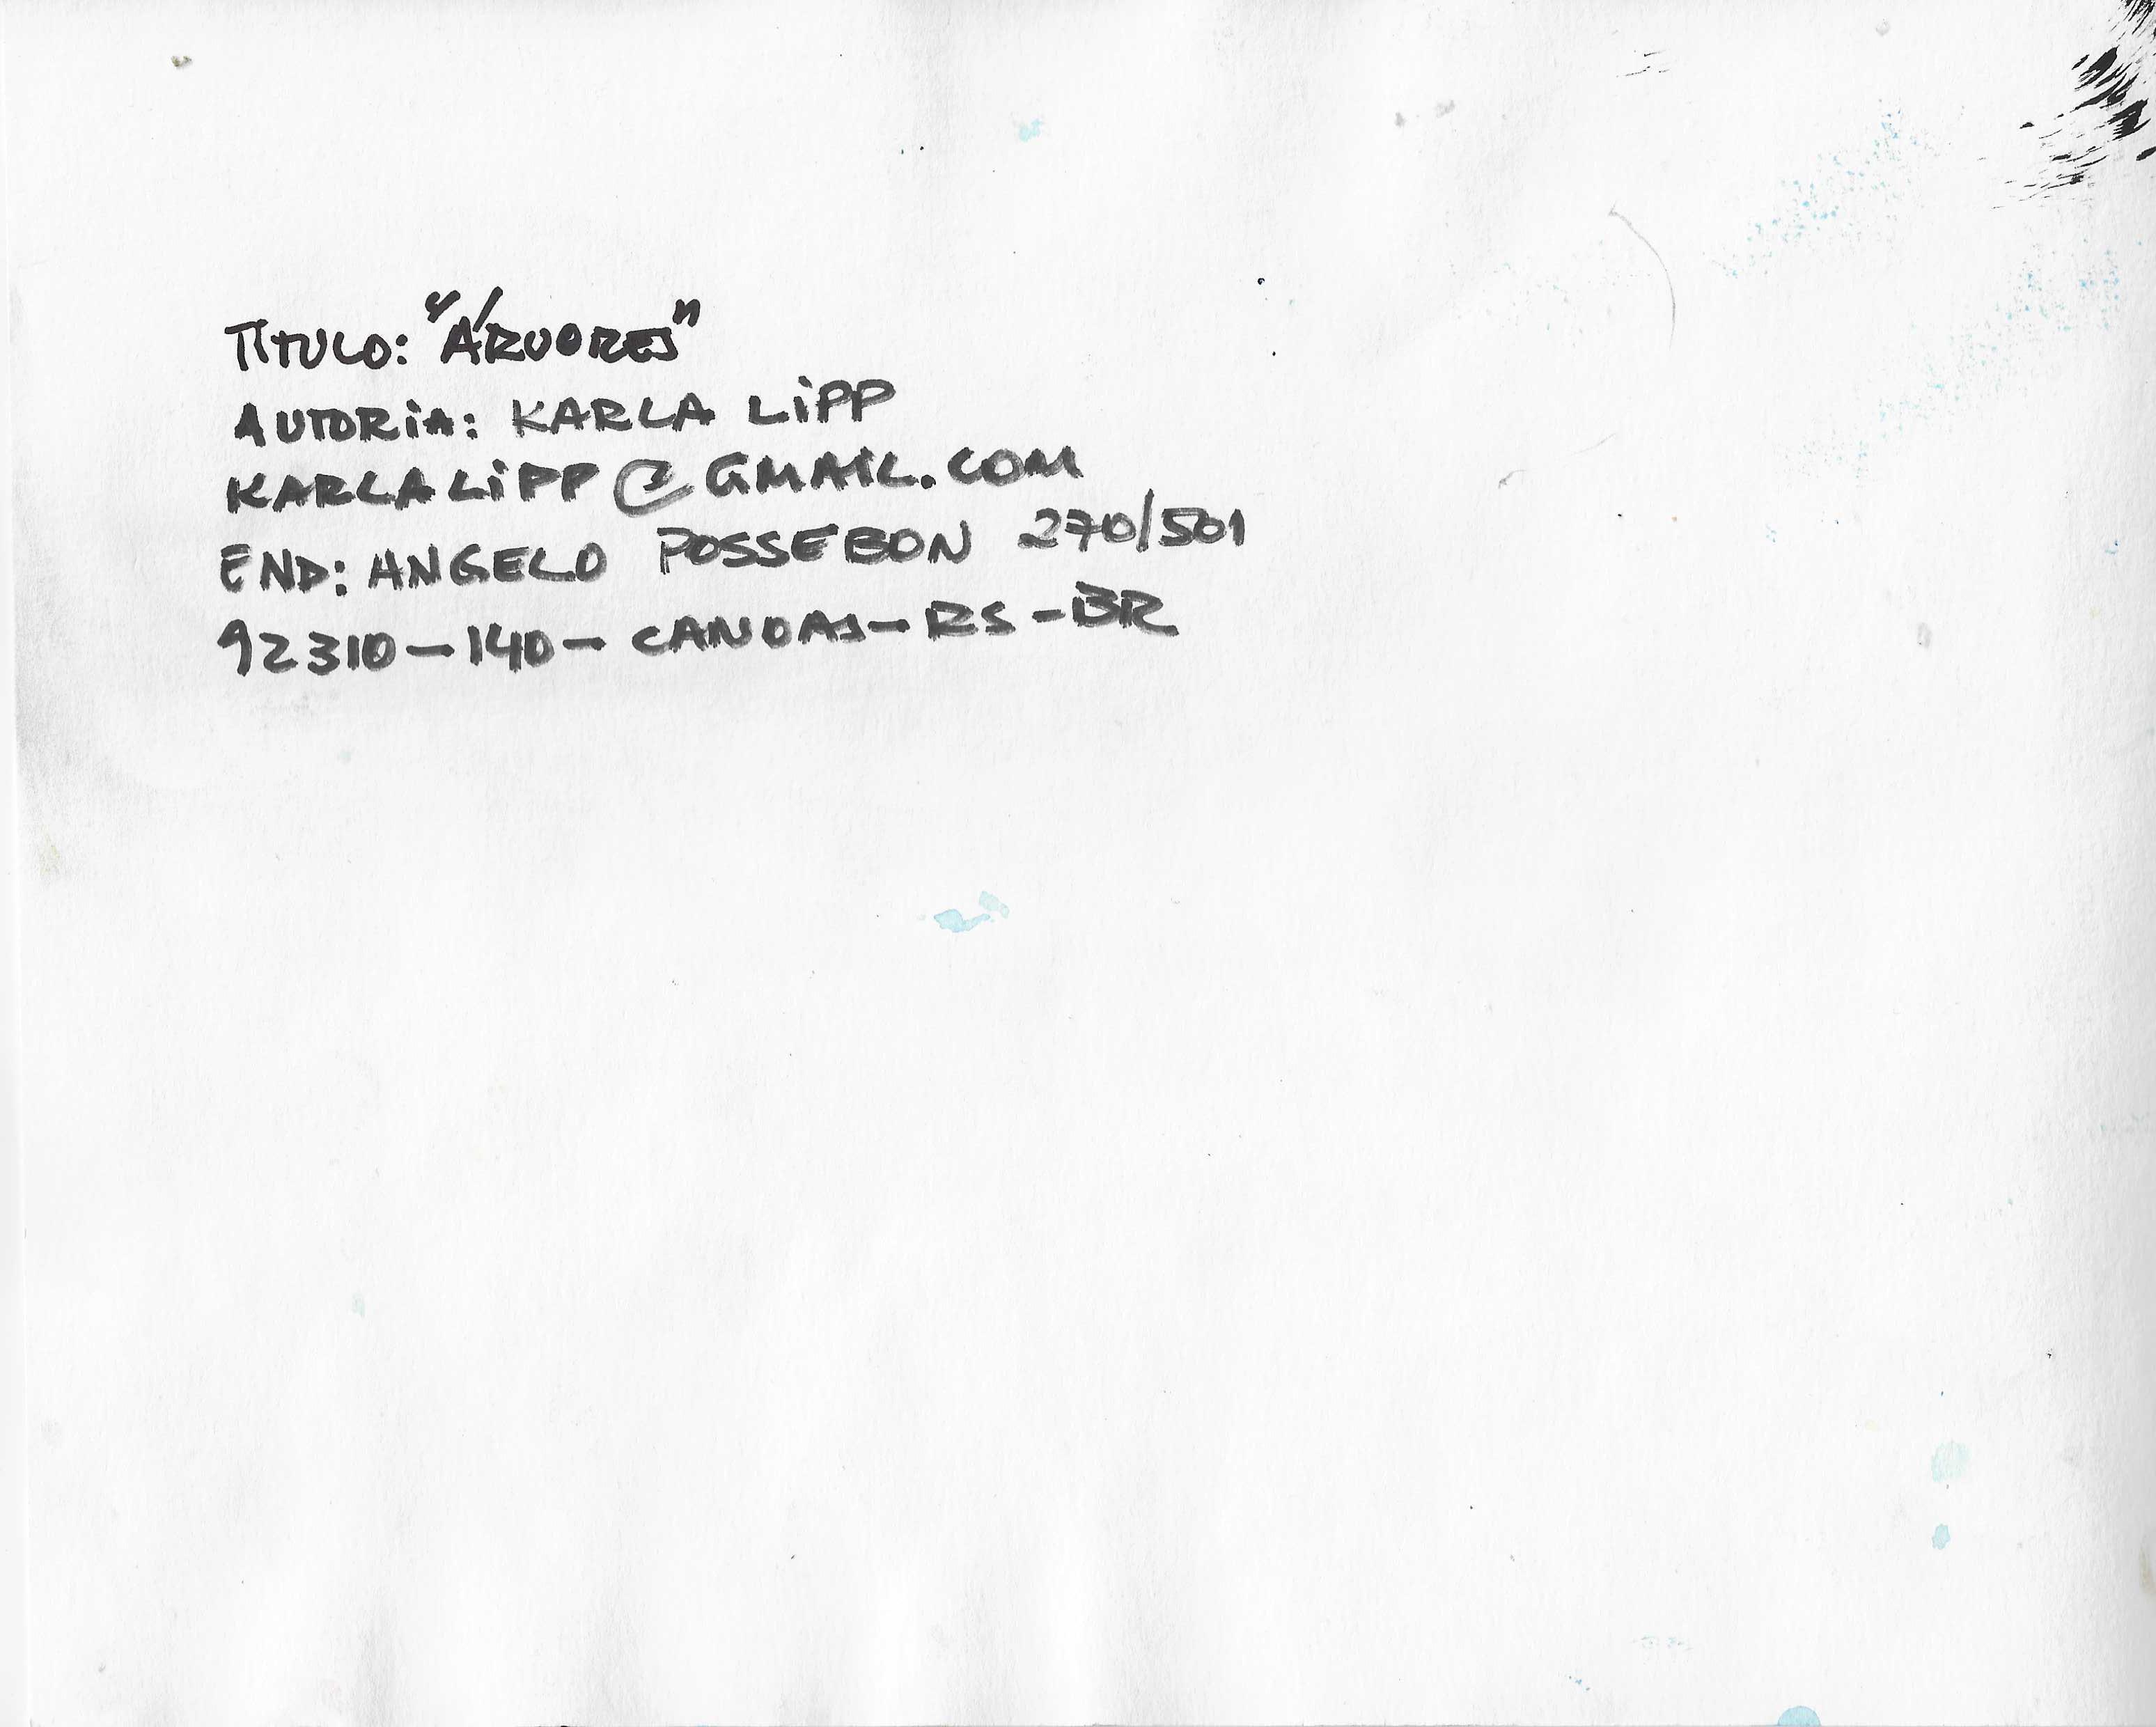 TÍTULO: "ÁRVORES"
AUTORIA: KARLA LIPP
KARLALIPP@GMAIL.COM
END: ANGELO POSSEBON 270/501
92310-140- CANOAS-RS-BR